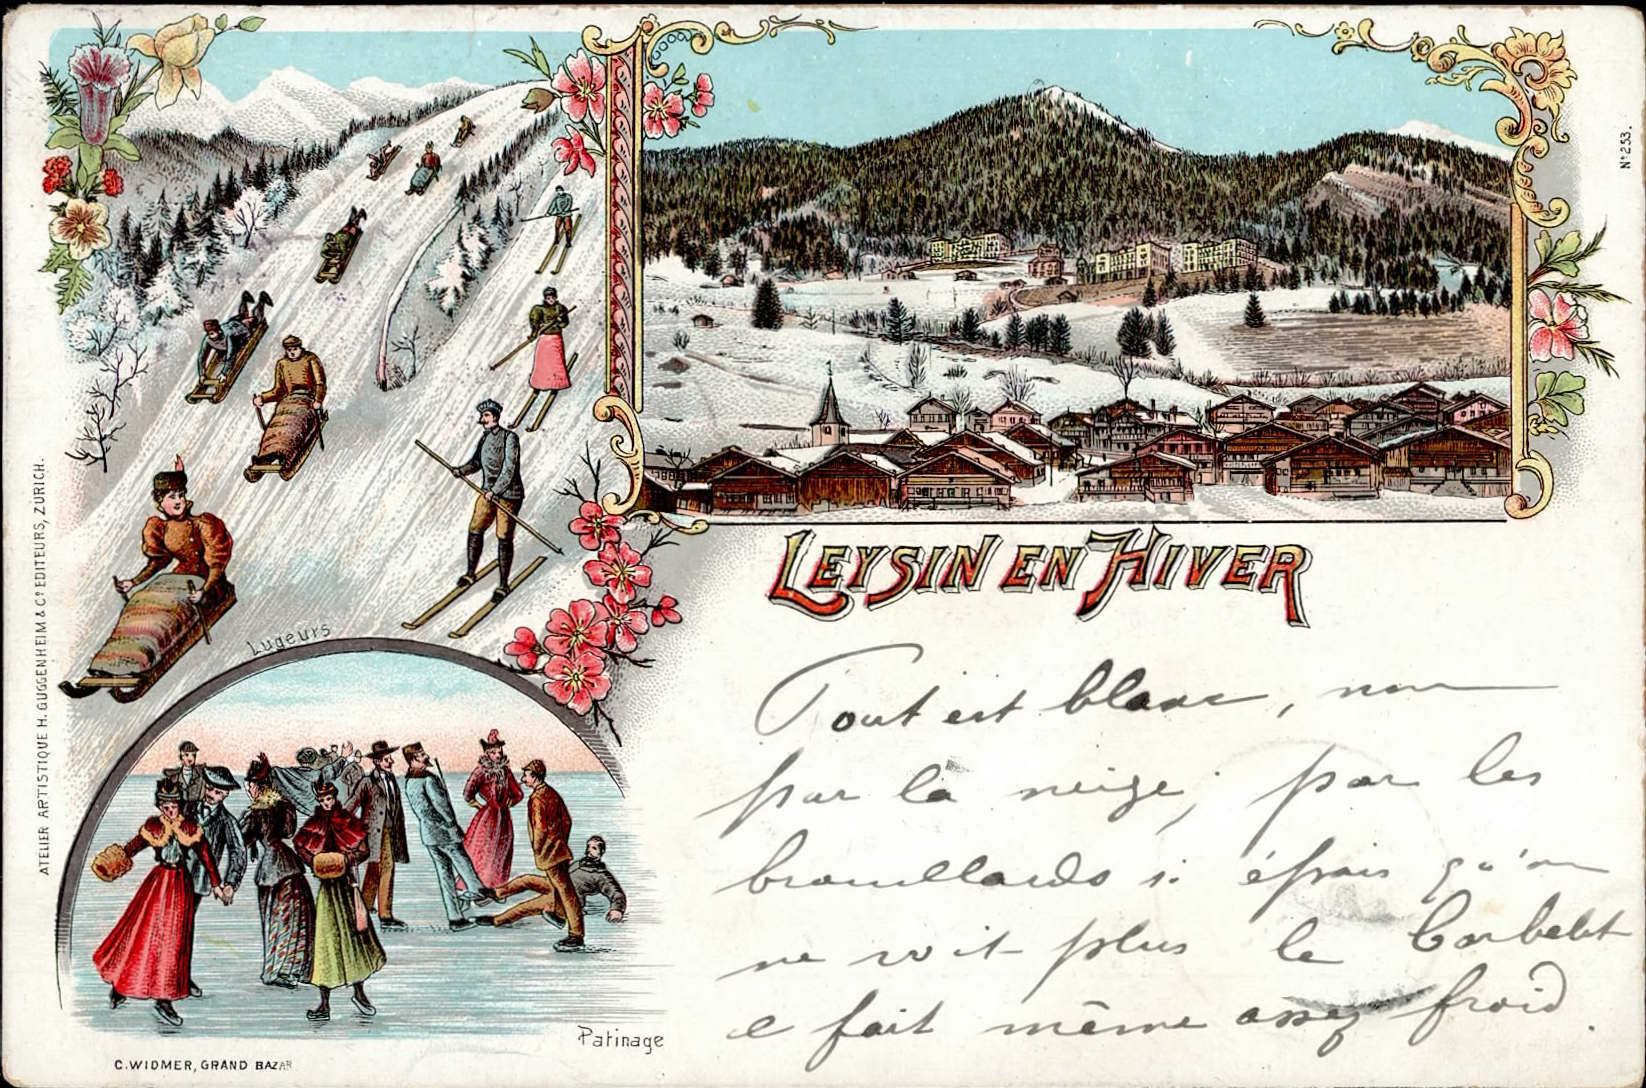 LEYSIN EN HIVER
Tout est blanc, non
par la neige, par les
brouillards si épais qu'on
ne voit plus le
e fait même assez froid.
Lugeurs
Patinage
C. WIDMER, GRAND BAZAR
ATELIER ARTISTIQUE H. GUGGENHEIM & Cº EDITEURS, ZURICH.
Nº 253.